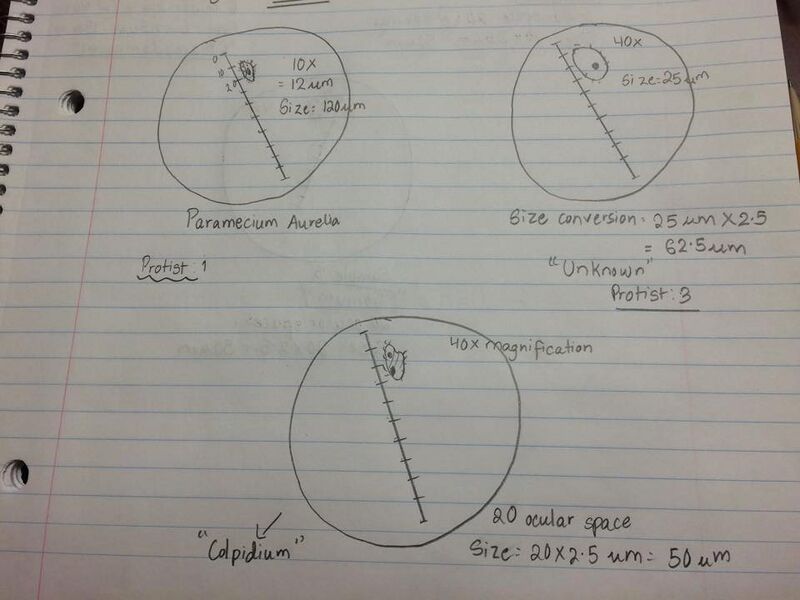 0
10
20
10x
= 12um
Size: 120um
Paramecium Aurelia
Protist: 1
40x
Size=25um
Size conversion: 25 um X 2.5
= 62.5um
"Unknown"
Protist: 3
40x magnification
"Colpidium"
20 ocular space
Size= 20X2.5 um= 50 um